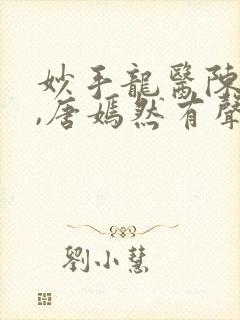 妙手龍醫陳
,唐嫣然有聲
劉小慧